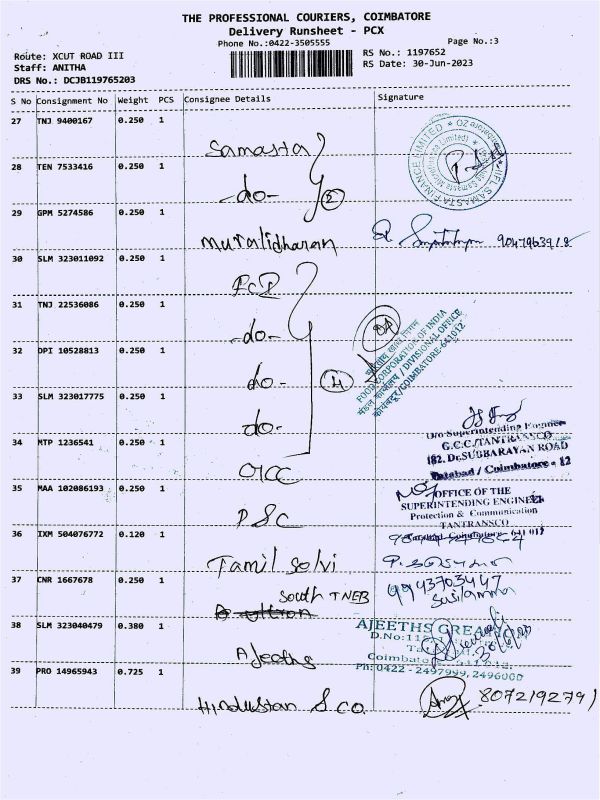 THE PROFESSIONAL COURIERS, COIMBATORE
Delivery Runsheet - PCX
Phone No.:0422-3505555
Page No.:3
Route: XCUT ROAD III
RS No.: 1197652
Staff: ANITHA
RS Date: 30-Jun-2023
DRS No.: DCJB119765203
S No Consignment No Weight PCS Consignee Details Signature
27 TNJ 9400167 0.250 1
Samasta
28 TEN 7533416 0.250 1
-do- 2
29 GPM 5274586 0.250 1
Muralidharan
30 SLM 323011092 0.250 1
FCI
31 TNJ 22536086 0.250 1
-do-
32 DPI 10528813 0.250 1
do- 4
FOOD CORPORATION OF INDIA
मंडल कार्यालय / DIVISIONAL OFFICE
कोयम्बतूर/COIMBATORE-641012
33 SLM 323017775 0.250 1
do-
34 MTP 1236541 0.250 1
O/o Superintending Engineer
G.C.C/TANTRANSCO
182, Dr.SUBBARAYAN ROAD
Tatabad / Coimbatore - 12
35 MAA 102086193 0.250 1
PSC
OFFICE OF THE
SUPERINTENDING ENGINEER
Protection & Communication
TANTRANSCO
Tatabad, Coimbatore- 641 012
36 IXM 504076772 0.120 1
Tamil Selvi
37 CNR 1667678 0.250 1
South TNEB
9943703447
Susilamma
38 SLM 323040479 0.380 1
Ajeeths
AJEETHS
D.No:11
Coimbatore
Ph: 0422 - 2497999, 2496000
39 PRO 14965943 0.725 1
Hindustan S co.
8072192791